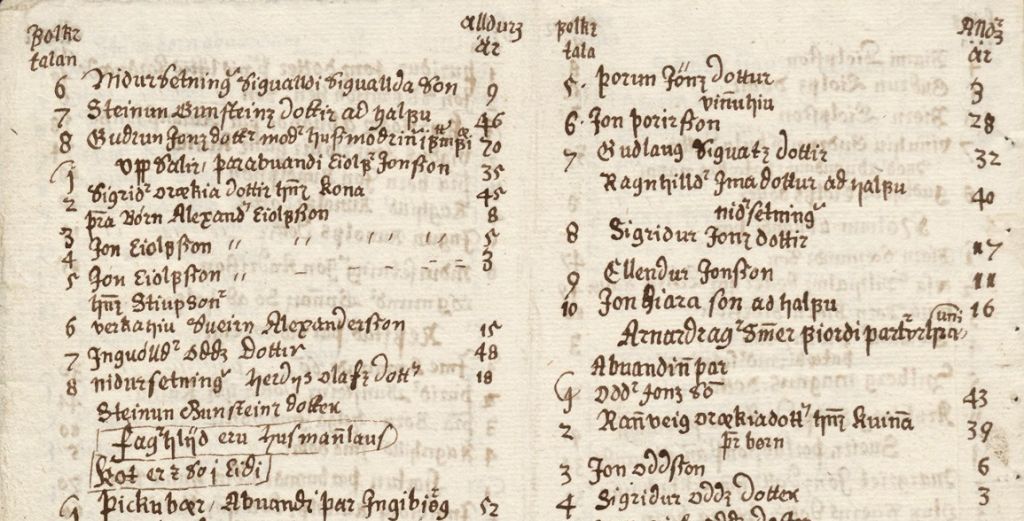 Folkr
talan
alldurz
är
6 Nidursetningr Sigualldi Siguallda Son 9
7 Steinun Gunsteinz dottir ad halfu 46
8 Gudrun Jonz dottr modr husmōdrinnar 70
Upp Salir, par abuandi Eiolfr Jonsson 35
1
2 Sigridr orækia dottir hnz kona 45
þra Börn Alexandr Eiolfsson 8
3 Jon Eiolfsson " " " " " 5
4
5 Jon Eiolfsson " 3
hnz Stiupsonr
6 verkahiu Sueirn Alexandersson 15
7 Inguölldr oddz Dottir 48
8 nidursetningr herdys olafz dottr 18
Steinun Gunsteinz dotter
Fagrhlijd eru husmañlaus
Kot er z so i Eidi
Pickubær, Abuandi par Ingibiörg 52
Folkr
tala
Alldz
är
5. þorun Jönz dottur 3
vinnuhiu
6. Jon þorirsson 28
7 Gudlaug Siguatz dottir 32
Ragnhilldr Jma dottur ad halfu 40
nidrsetningr
8 Sigridur Jonz dottir 17
9 Ellendur Jonsson 11
10 Jon kiara son ad halfu 16
Arnardragr
Abuandiñ par
1 Oddr Jonz so 43
2 Rañveig orækiadottr hnz kuinā 39
þr born
3 Jon oddsson 6
4 Sigridur oddz dotter 3
oddz dotter